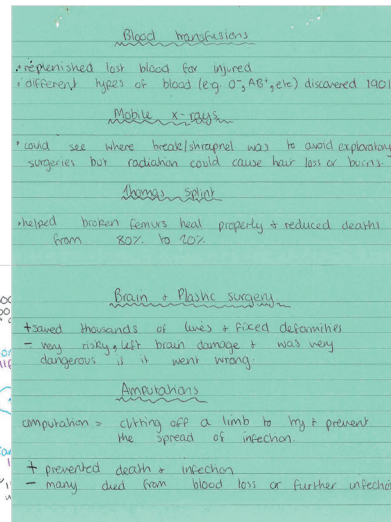 Blood transfusions
• replenished lost blood for injured
• different types of blood (e.g. O⁻, AB⁺, etc) discovered 1901
Mobile x-rays
• could see where break/shrapnel was to avoid exploratory
surgeries but radiation could cause hair loss or burns.
Thomas splint
• helped broken femurs heal properly + reduced deaths
from 80% to 20%
Brain + Plastic surgery
+ saved thousands of lives + fixed deformities
- very risky, left brain damage + was very
dangerous if it went wrong.
Amputations
amputation = cutting off a limb to try + prevent
the spread of infection.
+ prevented death + infection
- many died from blood loss or further infection